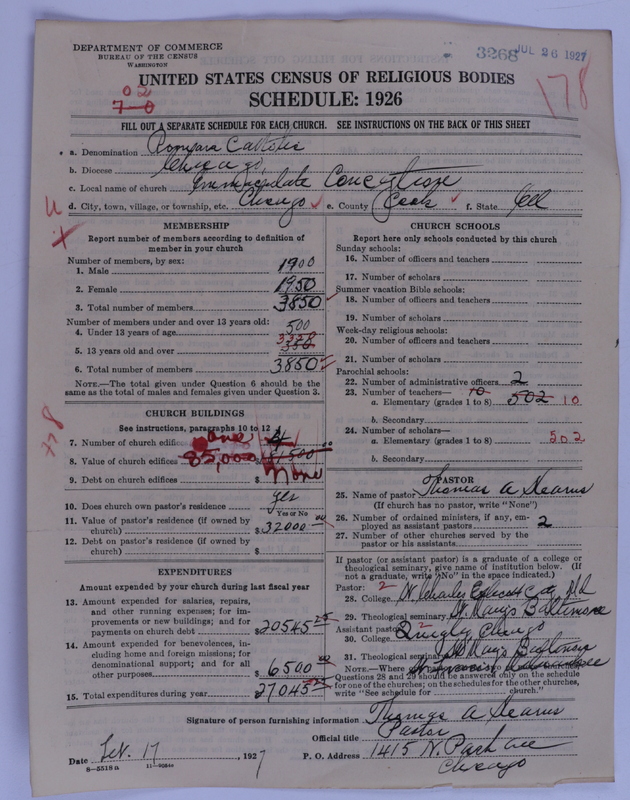 DEPARTMENT OF COMMERCE
BUREAU OF THE CENSUS
WASHINGTON
3268 JUL 26 1927
178
02
7-0
UNITED STATES CENSUS OF RELIGIOUS BODIES
SCHEDULE: 1926
FILL OUT A SEPARATE SCHEDULE FOR EACH CHURCH. SEE INSTRUCTIONS ON THE BACK OF THIS SHEET
a. Denomination Roman Catholic
b. Diocese Chicago
c. Local name of church Immaculate Conception
d. City, town, village, or township, etc. Chicago e. County Cook f. State Ill
MEMBERSHIP
Report number of members according to definition of
member in your church
Number of members, by sex:
1. Male 1900
2. Female 1950
3. Total number of members 3850
Number of members under and over 13 years old:
4. Under 13 years of age 500
5. 13 years old and over
6. Total number of members 3850
NOTE.—The total given under Question 6 should be the
same as the total of males and females given under Question 3.
CHURCH BUILDINGS
See instructions, paragraphs 10 to 12
7. Number of church edifices one
8. Value of church edifices 85,000 $
9. Debt on church edifices $ None
10. Does church own pastor's residence yes
Yes or No
11. Value of pastor's residence (if owned by
church) $ 32000 00
12. Debt on pastor's residence (if owned by
church) $
EXPENDITURES
Amount expended by your church during last fiscal year
13. Amount expended for salaries, repairs,
and other running expenses; for im-
provements or new buildings; and for
payments on church debt $ 20545 25
14. Amount expended for benevolences, in-
cluding home and foreign missions; for
denominational support; and for all
other purposes $ 6500 00
15. Total expenditures during year $ 27045 25
CHURCH SCHOOLS
Report here only schools conducted by this church
Sunday schools:
16. Number of officers and teachers
17. Number of scholars
Summer vacation Bible schools:
18. Number of officers and teachers
19. Number of scholars
Week-day religious schools:
20. Number of officers and teachers
21. Number of scholars
Parochial schools:
22. Number of administrative officers 2
23. Number of teachers— 10
a. Elementary (grades 1 to 8) 502 10
b. Secondary
24. Number of scholars—
a. Elementary (grades 1 to 8) 502
b. Secondary
PASTOR
25. Name of pastor Thomas A Kearns
(If church has no pastor, write "None")
26. Number of ordained ministers, if any, em-
ployed as assistant pastors 2
27. Number of other churches served by the
pastor or his assistants
If pastor (or assistant pastor) is a graduate of a college or
theological seminary, give name of institution below. (If
not a graduate, write "No" in the space indicated.)
Pastor: 2
28. College St Charles Ellicott City Md
29. Theological seminary St Marys Baltimore
Assistant pastor: 2
30. College Quigley Chicago
31. Theological seminary St Marys Baltimore
NOTE.—Where
Questions 28 and 29 should be answered only on the schedule
for one of the churches; on the schedules for the other churches,
write "See schedule for church."
Signature of person furnishing information Thomas A Kearns
Official title Pastor
Date Feb. 17, 1927 P. O. Address 1415 N. Park ave
Chicago
8—5518 a